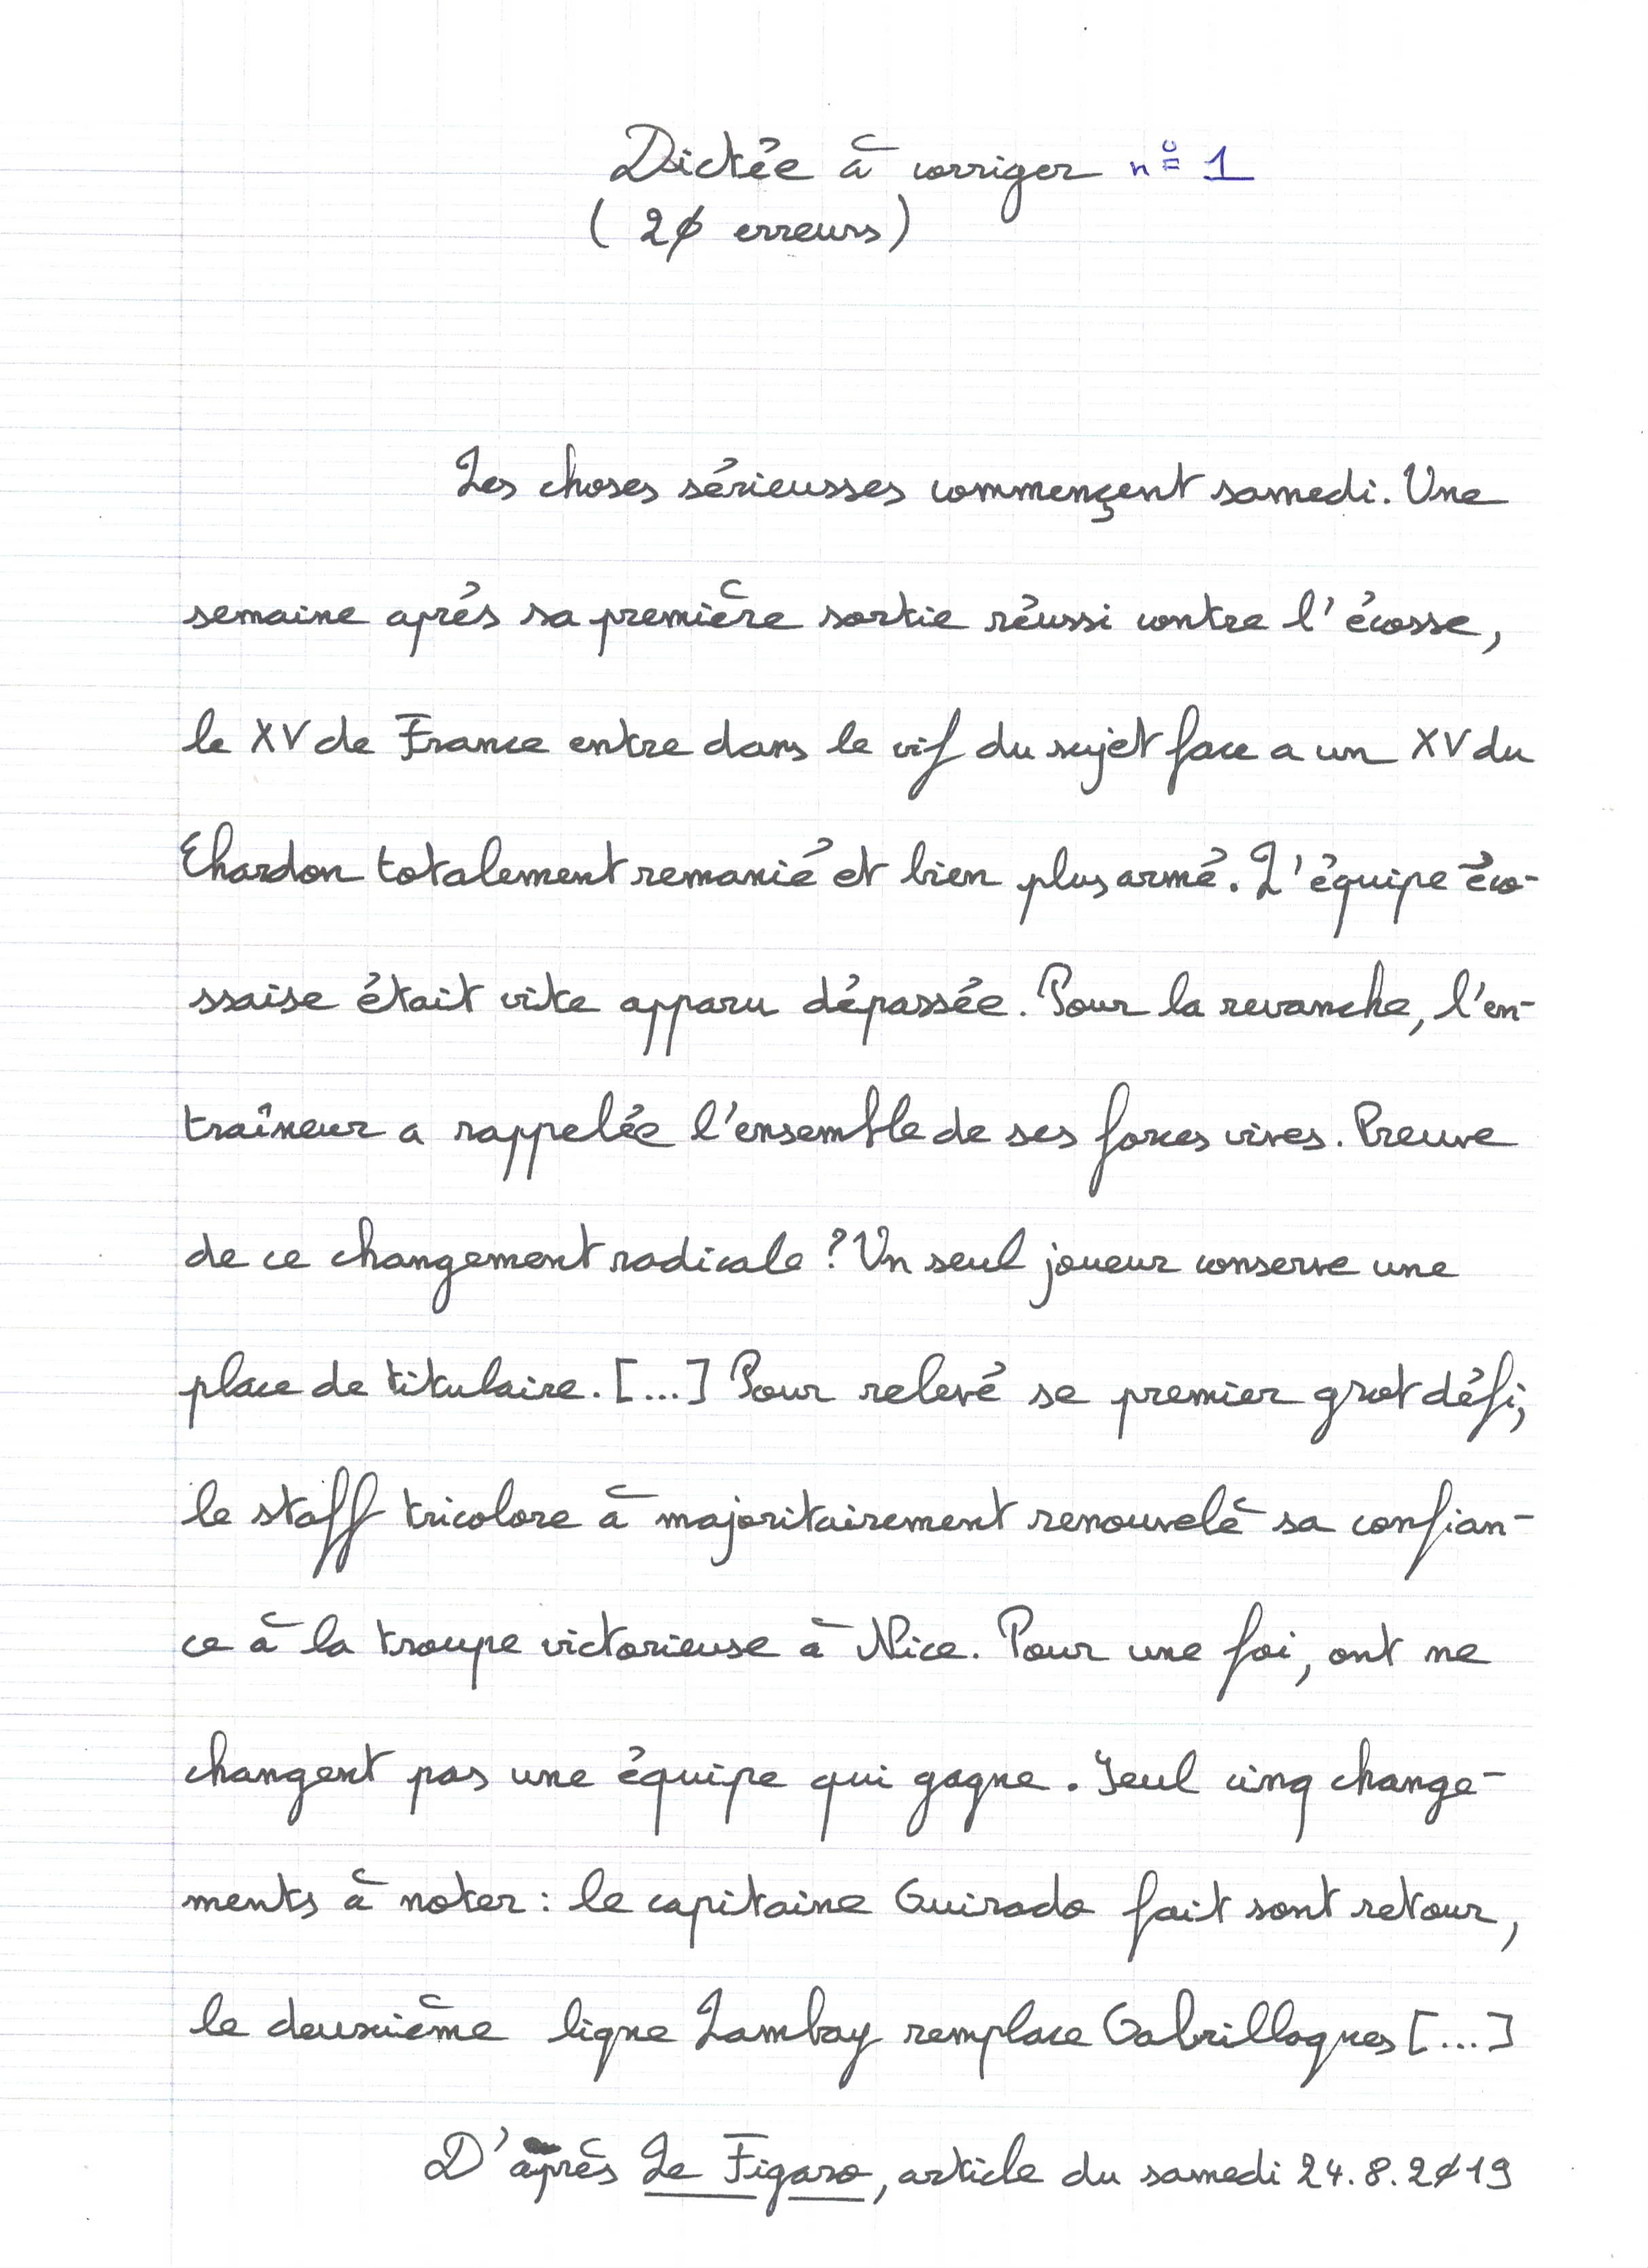 Dictée à corriger n° 1
(20 erreurs)
Les choses sérieusses commençent samedi. Une
semaine aprés sa première sortie réussi contre l'écosse,
le XV de France entre dans le vif du sujet face a un XV du
Chardon totalement remanié et bien plus armé. L'équipe éco-
ssaise était vite apparu dépassée. Pour la revanche, l'en-
traîneur a rappelée l'ensemble de ses forces vives. Preuve
de ce changement radicale ? Un seul joueur conserve une
place de titulaire. [...] Pour relevé se premier grot défi,
le staff tricolore à majoritairement renouvelé sa confian-
ce à la troupe victorieuse à Nice. Pour une foi, ont ne
changent pas une équipe qui gagne. Seul cinq change-
ments à noter : le capitaine Guirado fait sont retour,
le deuxième ligne Lambay remplace Gabrillagues [...]
D'après Le Figaro, article du samedi 24.8.2019